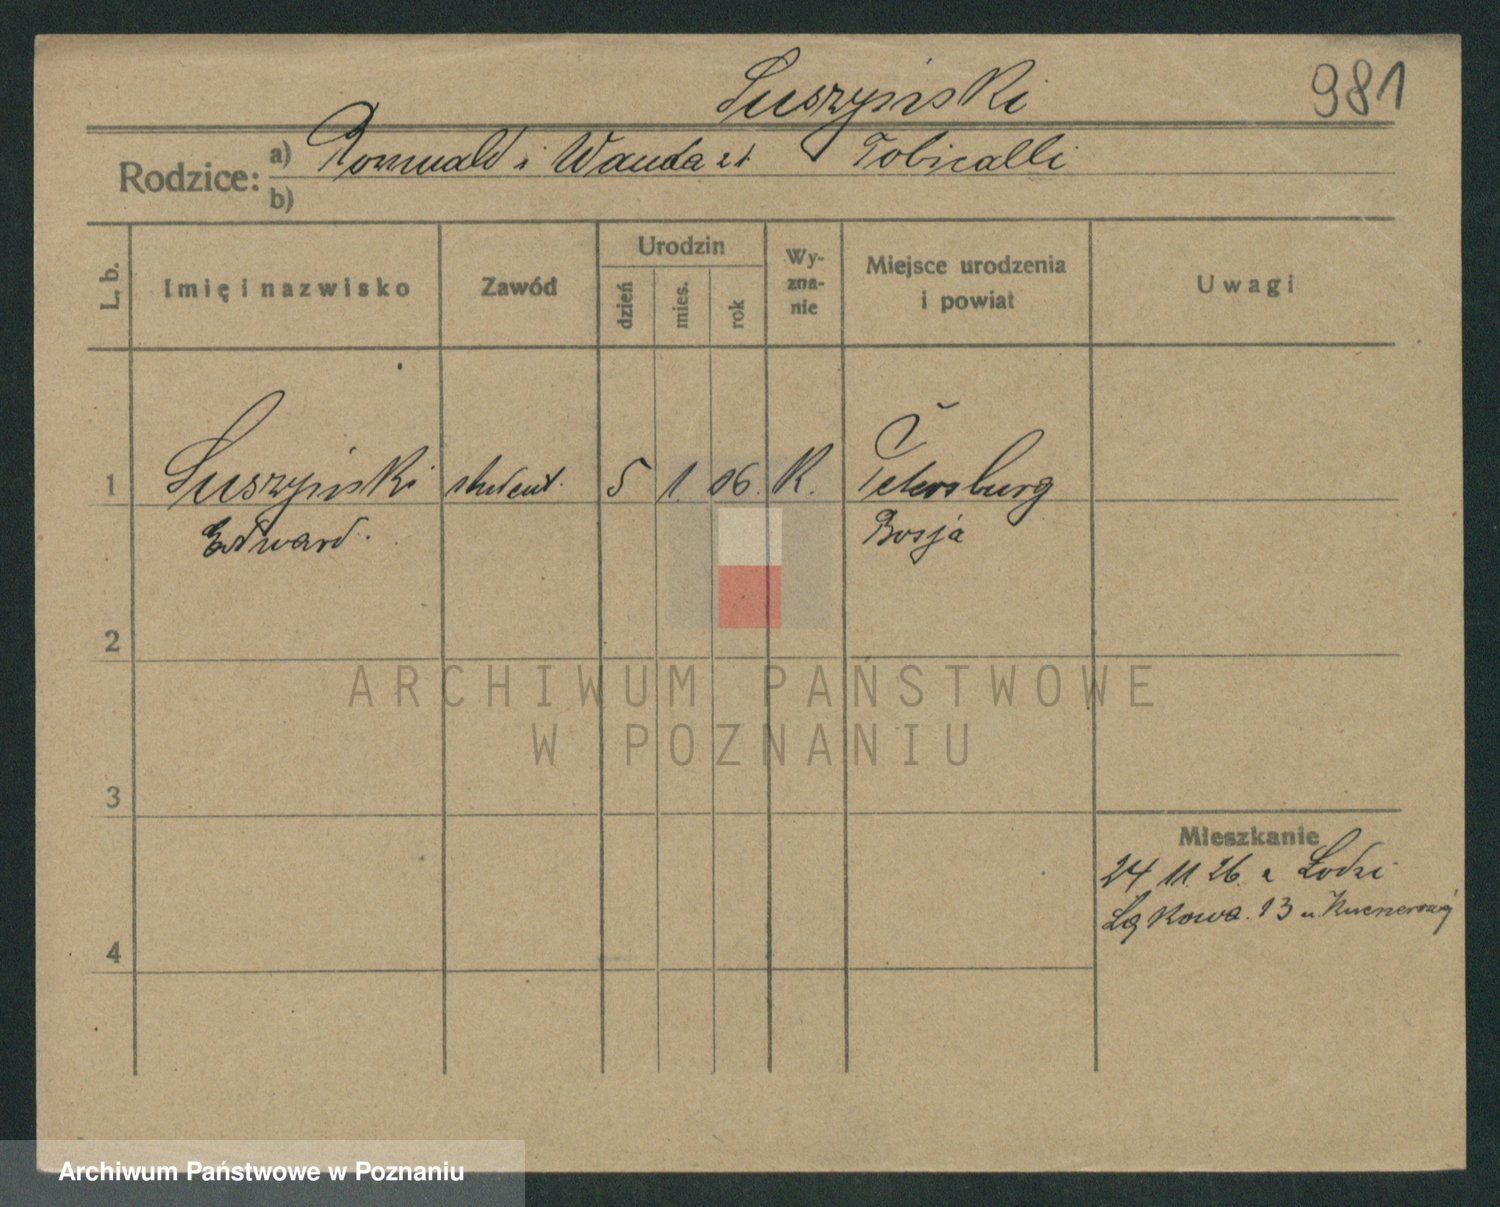 Suszyński
981
Rodzice: a) Romuald i Wanda zd. Tobicalli
b)
L, b.
Imię i nazwisko
Zawód
Urodzin
dzień
mies.
rok
Wy-
zna-
nie
Miejsce urodzenia
i powiat
Uwagi
1 Suszyński student. 5 1. 06. K. Petersburg
Edward. Rosja
2
3
4
Mieszkanie
24 11. 26. z Łodzi
Łąkowa. 13 u.
ARCHIWUM PAŃSTWOWE
W POZNANIU
Archiwum Państwowe w Poznaniu